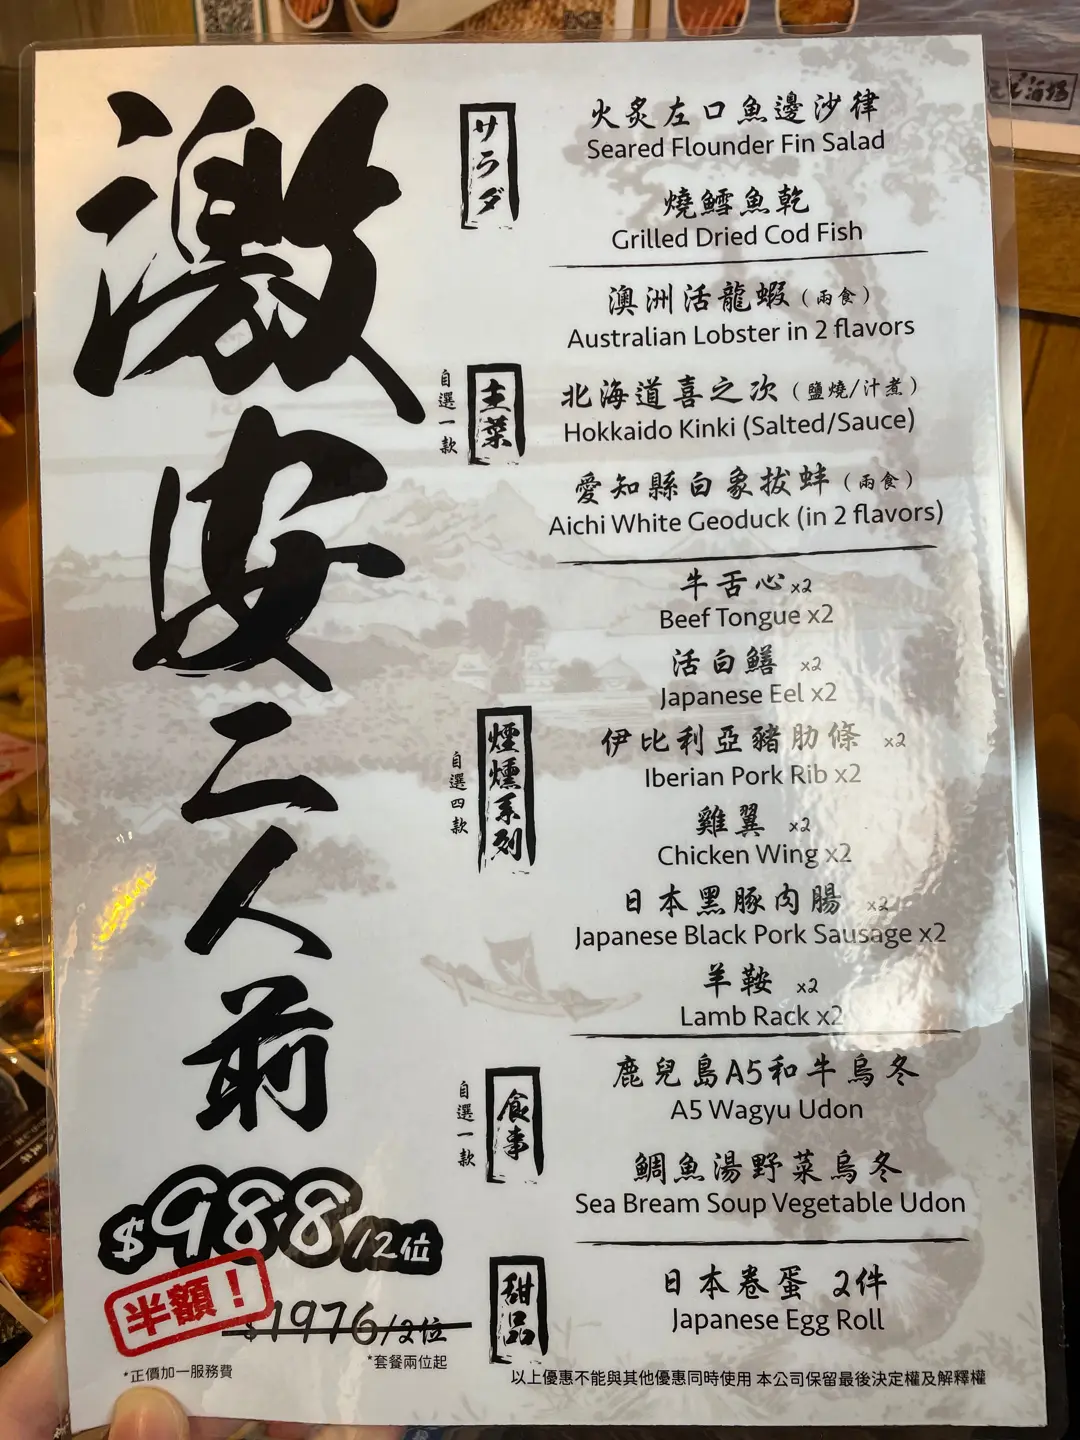 激安二人前
$988/2位
半額！
$1976/2位
*套餐兩位起
*正價加一服務費
サラダ
火炙左口魚邊沙律
Seared Flounder Fin Salad
燒鱈魚乾
Grilled Dried Cod Fish
自選一款
主菜
澳洲活龍蝦（兩食）
Australian Lobster in 2 flavors
北海道喜之次（鹽燒/汁煮）
Hokkaido Kinki (Salted/Sauce)
愛知縣白象拔蚌（兩食）
Aichi White Geoduck (in 2 flavors)
自選四款
煙燻系列
牛舌心 x2
Beef Tongue x2
活白鱔 x2
Japanese Eel x2
伊比利亞豬肋條 x2
Iberian Pork Rib x2
雞翼 x2
Chicken Wing x2
日本黑豚肉腸 x2
Japanese Black Pork Sausage x2
羊鞍 x2
Lamb Rack x2
自選一款
食事
鹿兒島A5和牛烏冬
A5 Wagyu Udon
鯛魚湯野菜烏冬
Sea Bream Soup Vegetable Udon
甜品
日本卷蛋 2件
Japanese Egg Roll
以上優惠不能與其他優惠同時使用 本公司保留最後決定權及解釋權